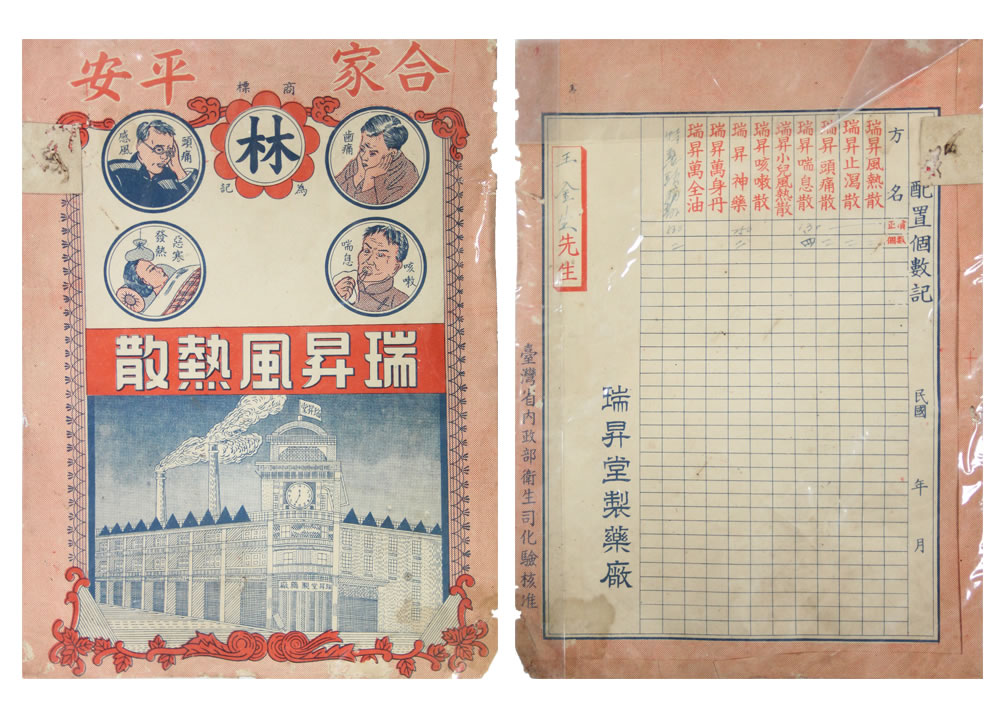 合家平安
商標
林
為記
頭痛
感風
齒痛
惡寒
發熱
咳嗽
喘息
瑞昇風熱散
瑞昇堂
瑞昇堂製藥廠
配置個數記
民國 年 月
方名
賣數
正個
瑞昇風熱散
瑞昇止瀉散
瑞昇頭痛散
瑞昇喘息散
瑞昇小兒風熱散
瑞昇咳嗽散
瑞昇神藥
瑞昇萬身丹
瑞昇萬全油
王金
先生
瑞昇堂製藥廠
臺灣省內政部衛生司化驗核准